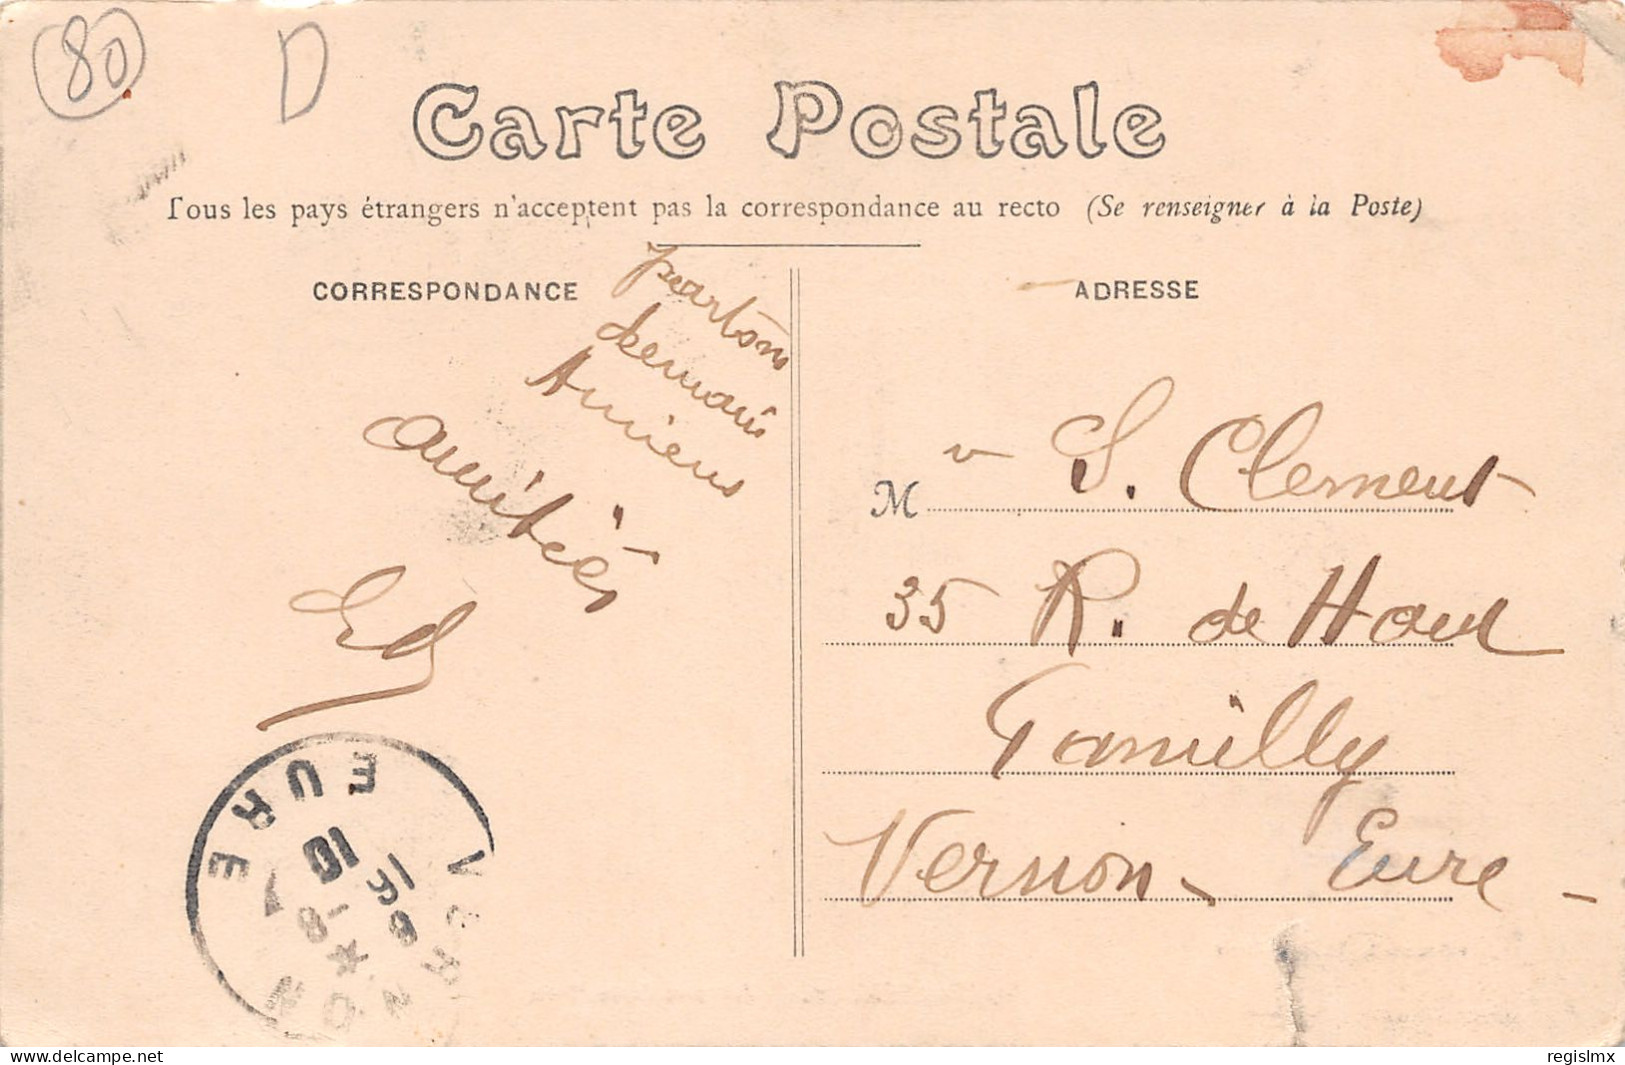 80
D
Carte Postale
Tous les pays étrangers n'acceptent pas la correspondance au recto (Se renseigner à la Poste)
CORRESPONDANCE
partons
demain
Amiens
amitiés
Ed
VERNON
EURE
ADRESSE
M S. Clement
35 R. de Haut
Tamilly
Vernon - Eure -
www.delcampe.net
regislmx